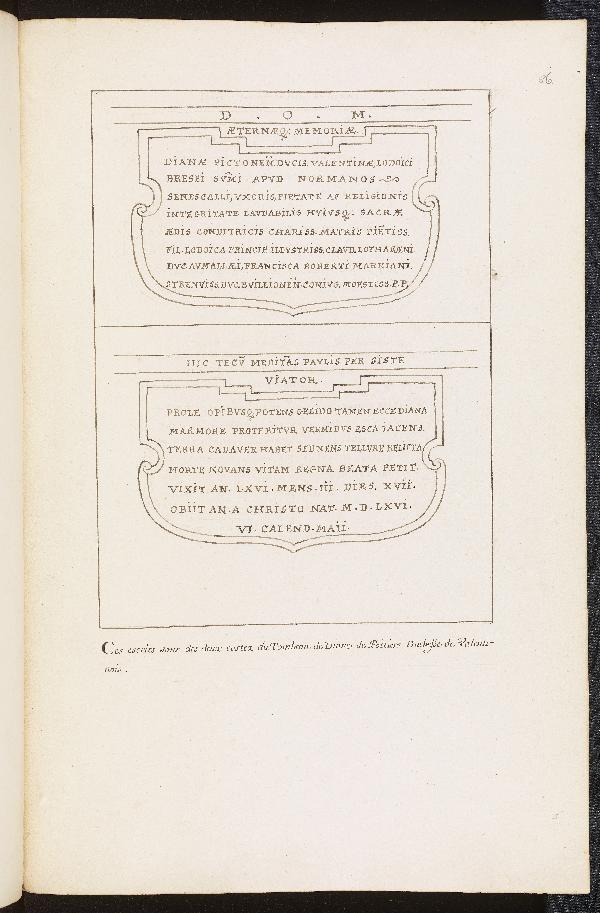 86.
D . O . M.
ÆTERNÆQ; MEMORIÆ.
DIANÆ PICTONEÑ. DVCIS. VALENTINÆ, LODOICI
BRESEI SVM̃I APVD NORMANOS
SENESCALLI, VXORIS, PIETATE AC RELIGIONIS
INTEGRITATE LAVDABILIS HVIVSQ; SACRÆ
ÆDIS CONDITRICIS CHARISS. MATRIS PIẼTISS.
FIL. LODOICA PRINCIP. ILLVSTRISS. CLAVD. LOTHARÆNI
DVC. AVMALLÆI, FRANCISCA ROBERTI MARKIANI.
STRENVISS. DVC. BVILLIONEÑ. CONIVG. MŒSTISS. P.P.
HIC TECṼ MEDIT̃AS PAVLIS PER SISTE
VIATOR.
PROLE OPIBVSQ; POTENS GELIDO TAMEN ECCE DIANA
MARMORE PROTERITVR VERMIBVS ESCA IACENS.
TERRA CADAVER HABET SED MENS TELLVRE RELICTA
MORTE NOVANS VITAM REGNA BEATA PETIT.
VIXIT AN. LXVI. MENS. III. DIES. XVII.
OBIIT AN. A CHRISTO NAT. M. D. LXVI.
VI. CALEND. MAII.
Ces escrits sont des deux costez du Tombeau de Diane de Poitiers Duchesse de Valenti-
nois.